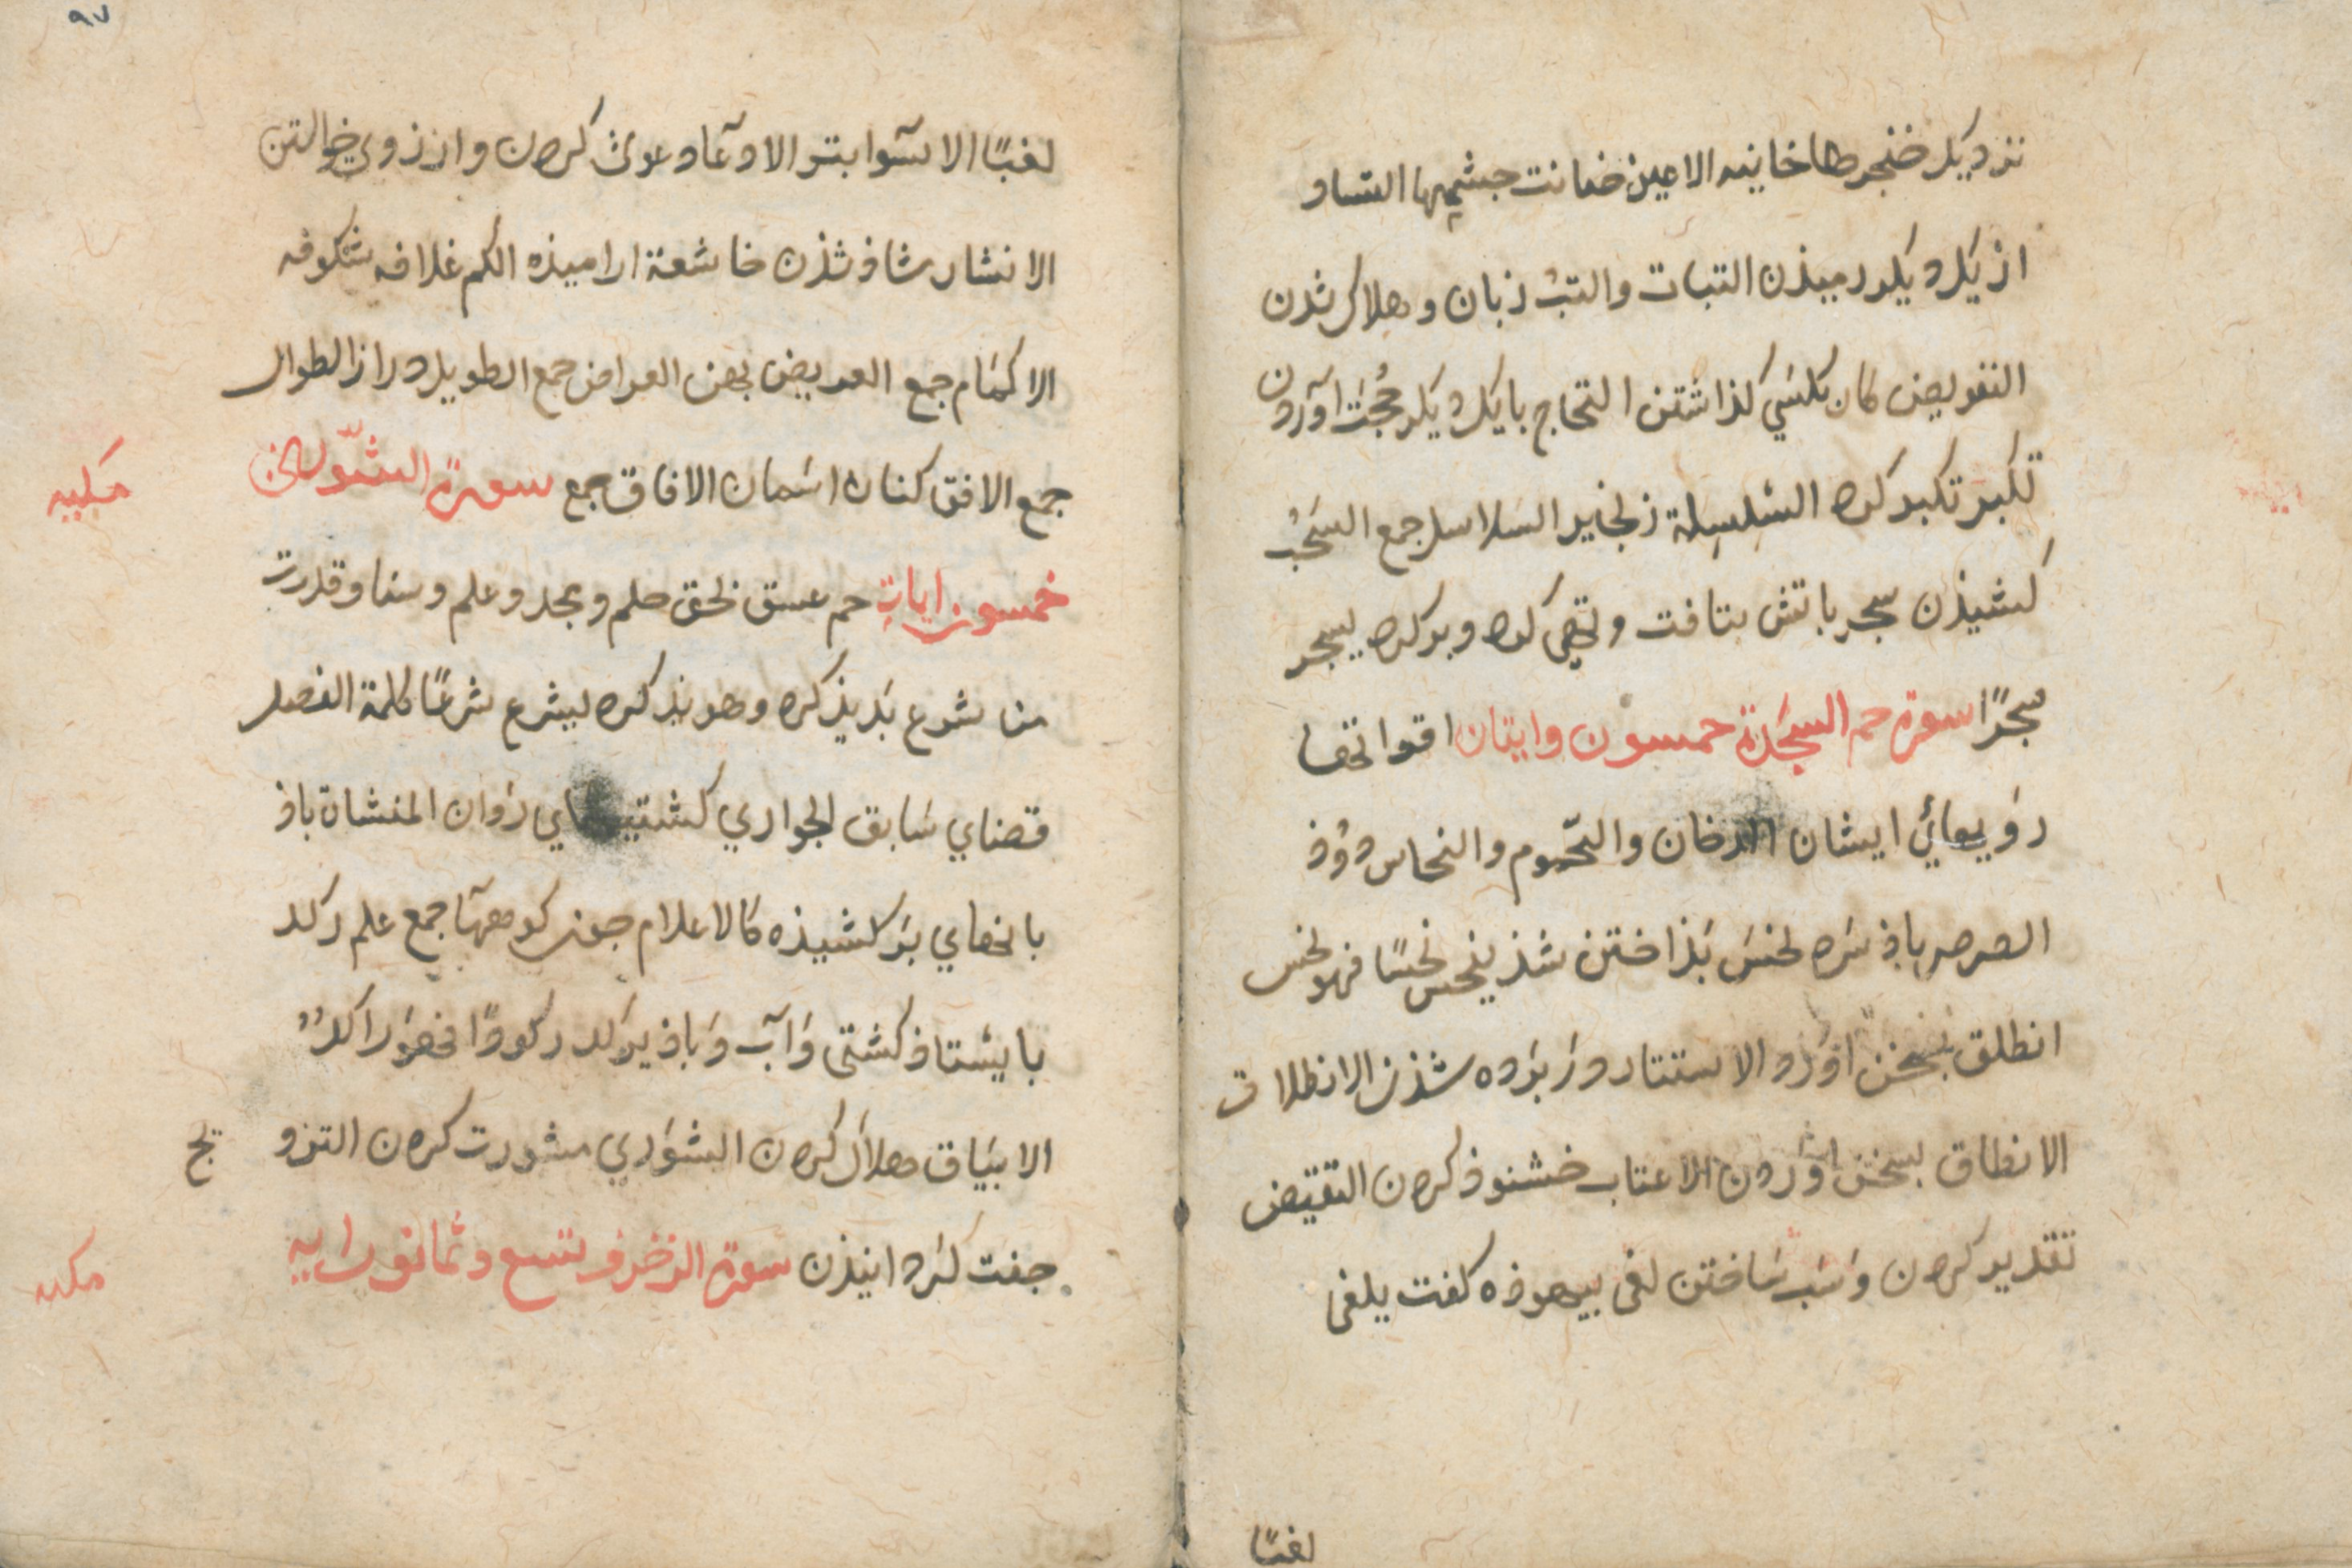 نزديك خنجرها خاينه الاعين خيانت چشمها التناد
از يكديكر رميذن التبات والتبُ زيان و هلاك شذن
التفويض كار بكسَي كذاشتن التحاج بايكديكر حُجّت آوردن
تكبر تكبر كره السِّلسِلة زنجير السلاسل جمع السَحْبُ
كشيذن سجر باتش بتافت و تهى كره و پر كره يسجر
سَجرًا سورة حم السجَدة خمسون وايتان اقواتها
رَوزيهائي ايشان الدخان واليَحموم والنحاس دوُذ
الصرصر باذ سَره لحسَ بَذاختن شذ ينحس نحسًا فهو نحس
انطلق بسخن اوَرد الاستتار دَر پَرده شذن الانطلاق
الانطاق بسخن اوَردن الاعتاب خشنوذ كرهن التقييض
تقدير كرهن وَسَبب سَاختن لغى بيهوذه كفت يلغى
لغيًا
٩٧
لغيًا الاسَوا بتر الادّعا دعوى كرهن وارزوى خواستن
الانشار شاذ شذن خاشعة اراميذه الكم غلافه شكوفه
الاكمَام جمع العريض پهن العراض جمع الطويل دراز الطوال
جمع الافق كنارهٔ اسَمان الافاق جمع سورة الشّورى مكييه
خمسون ايات حم عسق بحق حلم و مجد و علم و سنا و قدرت
من شرع پَديذ كره و هو پذيذ كره ليشرع شرعًا كلمة الفصل
قضاي سَابق الجواري كشتيهاي رَوان المنشاة باذ
بانهاي بَر كشيذه كالاعلام چون كوههَا جمع علم ركد
بايسَتاذ كشتى وَآب وَباذ يركد ركودًا فهوَ راكدٌ
الايبَاق هلاك كرهن الشوَري مشورت كرهن التزو يج
جفت كَردانيذن سورة الزخرف تسع وثمانون ايه مكيه